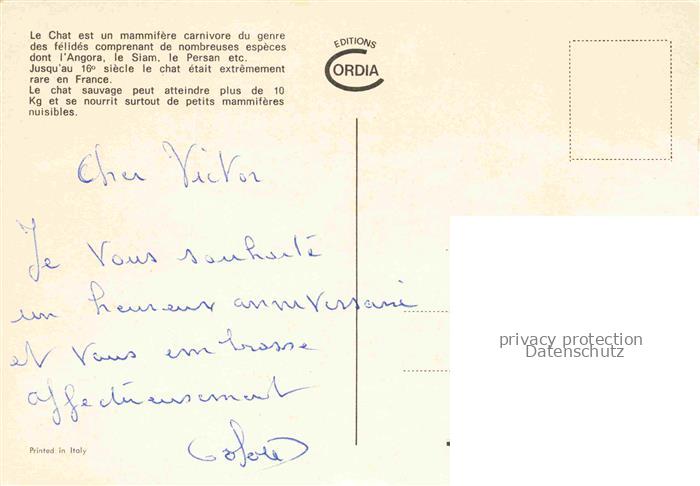 Le Chat est un mammifère carnivore du genre
des félidés comprenant de nombreuses espèces
dont l'Angora, le Siam, le Persan etc.
Jusqu'au 16º siècle le chat était extrêmement
rare en France.
Le chat sauvage peut atteindre plus de 10
Kg et se nourrit surtout de petits mammifères
nuisibles.
EDITIONS
CORDIA
Cher Victor
Je vous souhaite
un heureux anniversaire
et vous embrasse
affectueusement
Printed in Italy
privacy protection
Datenschutz